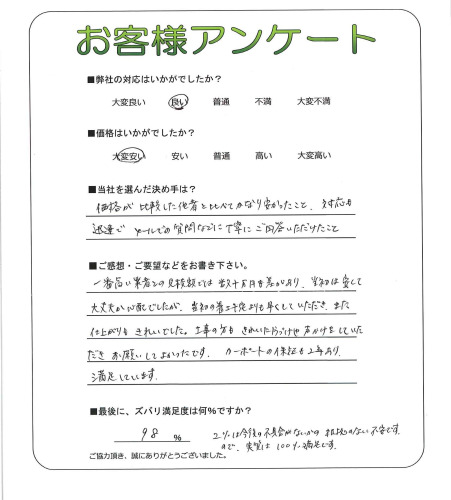 お客様アンケート
■弊社の対応はいかがでしたか?
大変良い 良い 普通 不満 大変不満
■価格はいかがでしたか?
大変安い 安い 普通 高い 大変高い
■当社を選んだ決め手は?
価格が比較した他者と比べてかなり安かったこと、対応も
迅速で メールでの質問などに丁寧にご回答いただけたこと
■ご感想・ご要望などをお書き下さい。
一番高い業者との見積額では数十万円も差があり、当初は安くて
大丈夫か心配でしたが、当初の着工予定よりも早くしていただき、また
仕上がりも きれいでした。工事の方も きれいに片づけや声かけをしていた
だき お願いしてよかったです。カーポートの保証も2年あり、
満足しています。
■最後に、ズバリ満足度は何%ですか?
98 %
2%は今後の不具合がないかの 根拠のない不安です。
ので、実質は100%満足です。
ご協力頂き、誠にありがとうございました。